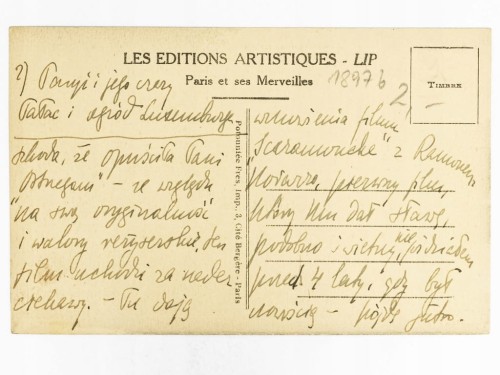 LES EDITIONS ARTISTIQUES - LIP
Paris et ses Merveilles
18976
2,-
TIMBRE
2) Paryż i jego czary
Pałac i ogród Luxemburga
szkoda, że opuściła Pani
ze względu
"na swą oryginalność"
i walory reżyserskie, ten
film uchodzi za nader
ciekawy. - Tu dają
Pomonniée Fres, Imp., 3, Cité Bergère - Paris
wznowienia filmu
"Scaramouche" z Ramonem
Novarro, pierwszy film,
który mu dał sławę,
podobno świetny, nie widziałem
przed 4 laty, gdy był
nowością - pójdę jutro.